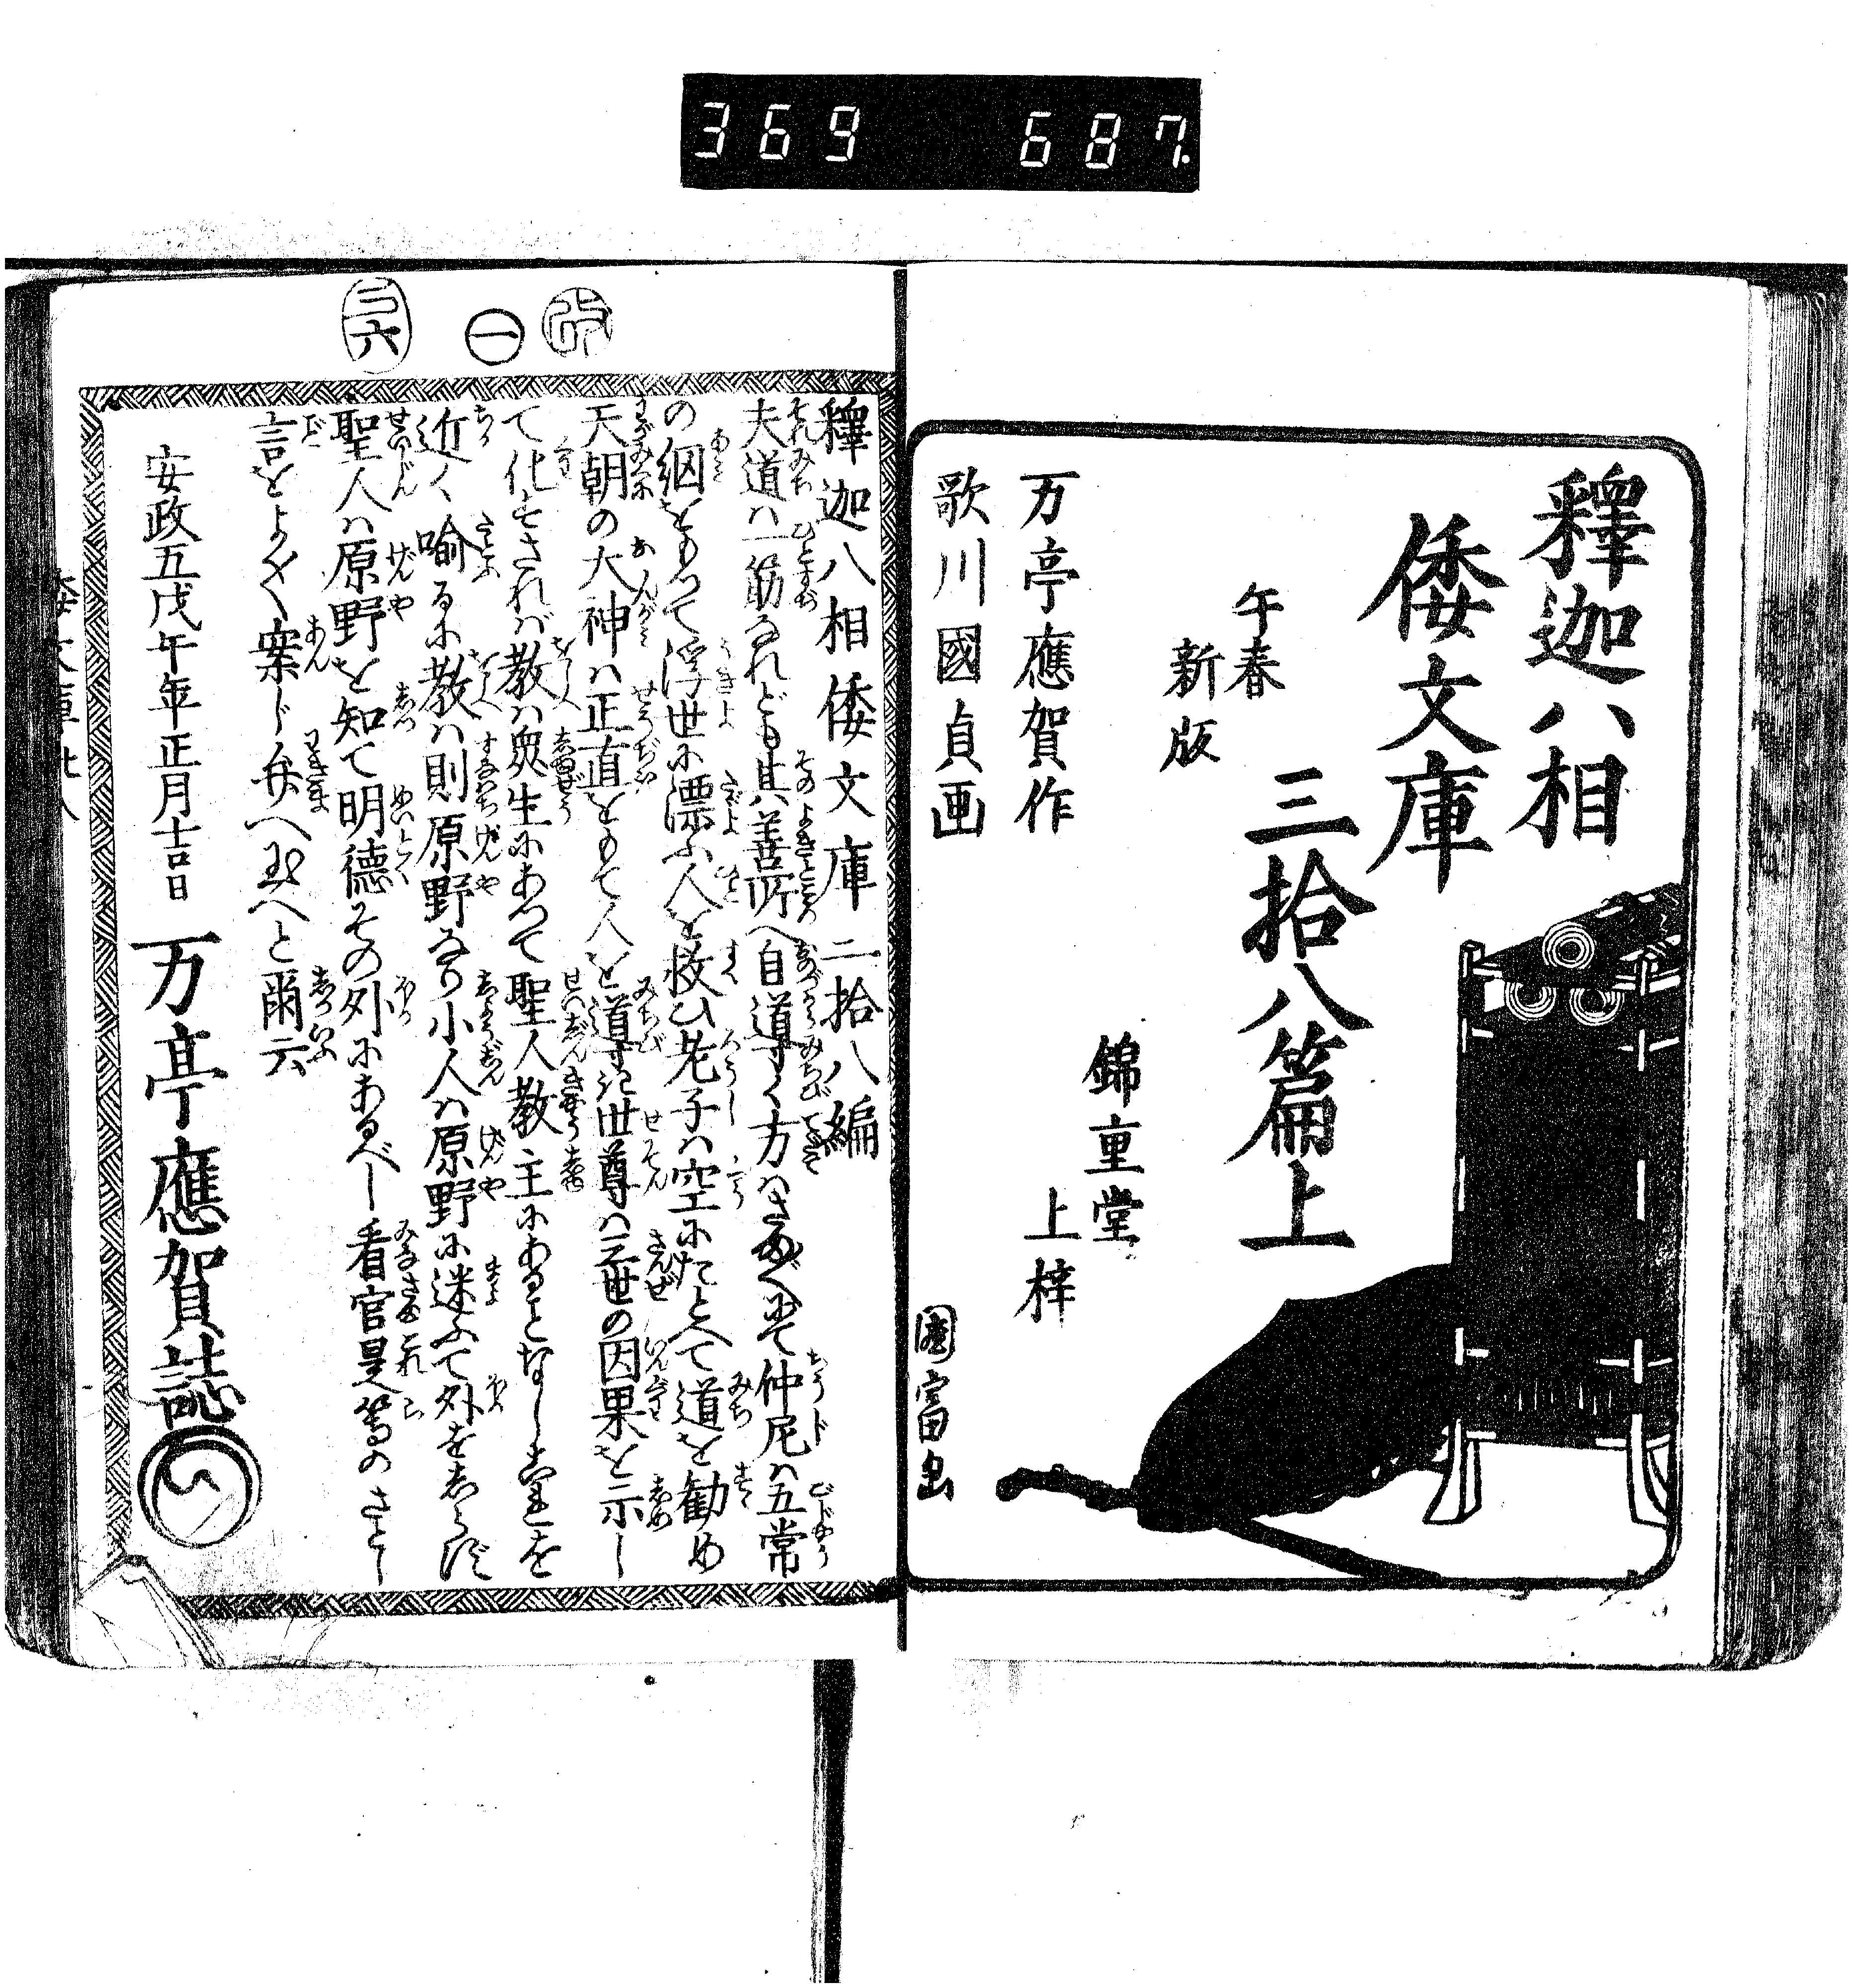 369 687.
釋迦八相
倭文庫
三拾八篇上
午春
新版
錦重堂
上梓
万亭應賀作
歌川國貞画
改
一
釋迦八相倭文庫二拾八編
夫道ハ一筋なれども其善所へ自導く方ハさま〴〵にて仲尼ハ五常
の網をもつて浮世に漂ふ人を救ひ老子ハ空にたとへて道を勧め
天朝の大神ハ正直をもて人を導き世尊ハ三世の因果を示し
て化すされバ教ハ衆生にあつて聖人教主にあることなし是を
近く喩るに教ハ則原野なり小人ハ原野に迷ふて外をしらず
聖人ハ原野を知て明徳その外にあるべし看官是等のさとし
言をよく〳〵案じ弁へ玉へと爾云
安政五戊午年正月吉日
万亭應賀誌